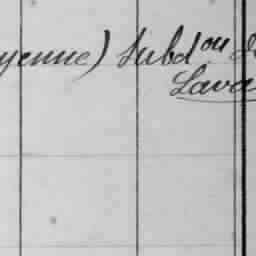 yenne) Subd^on d
Lava